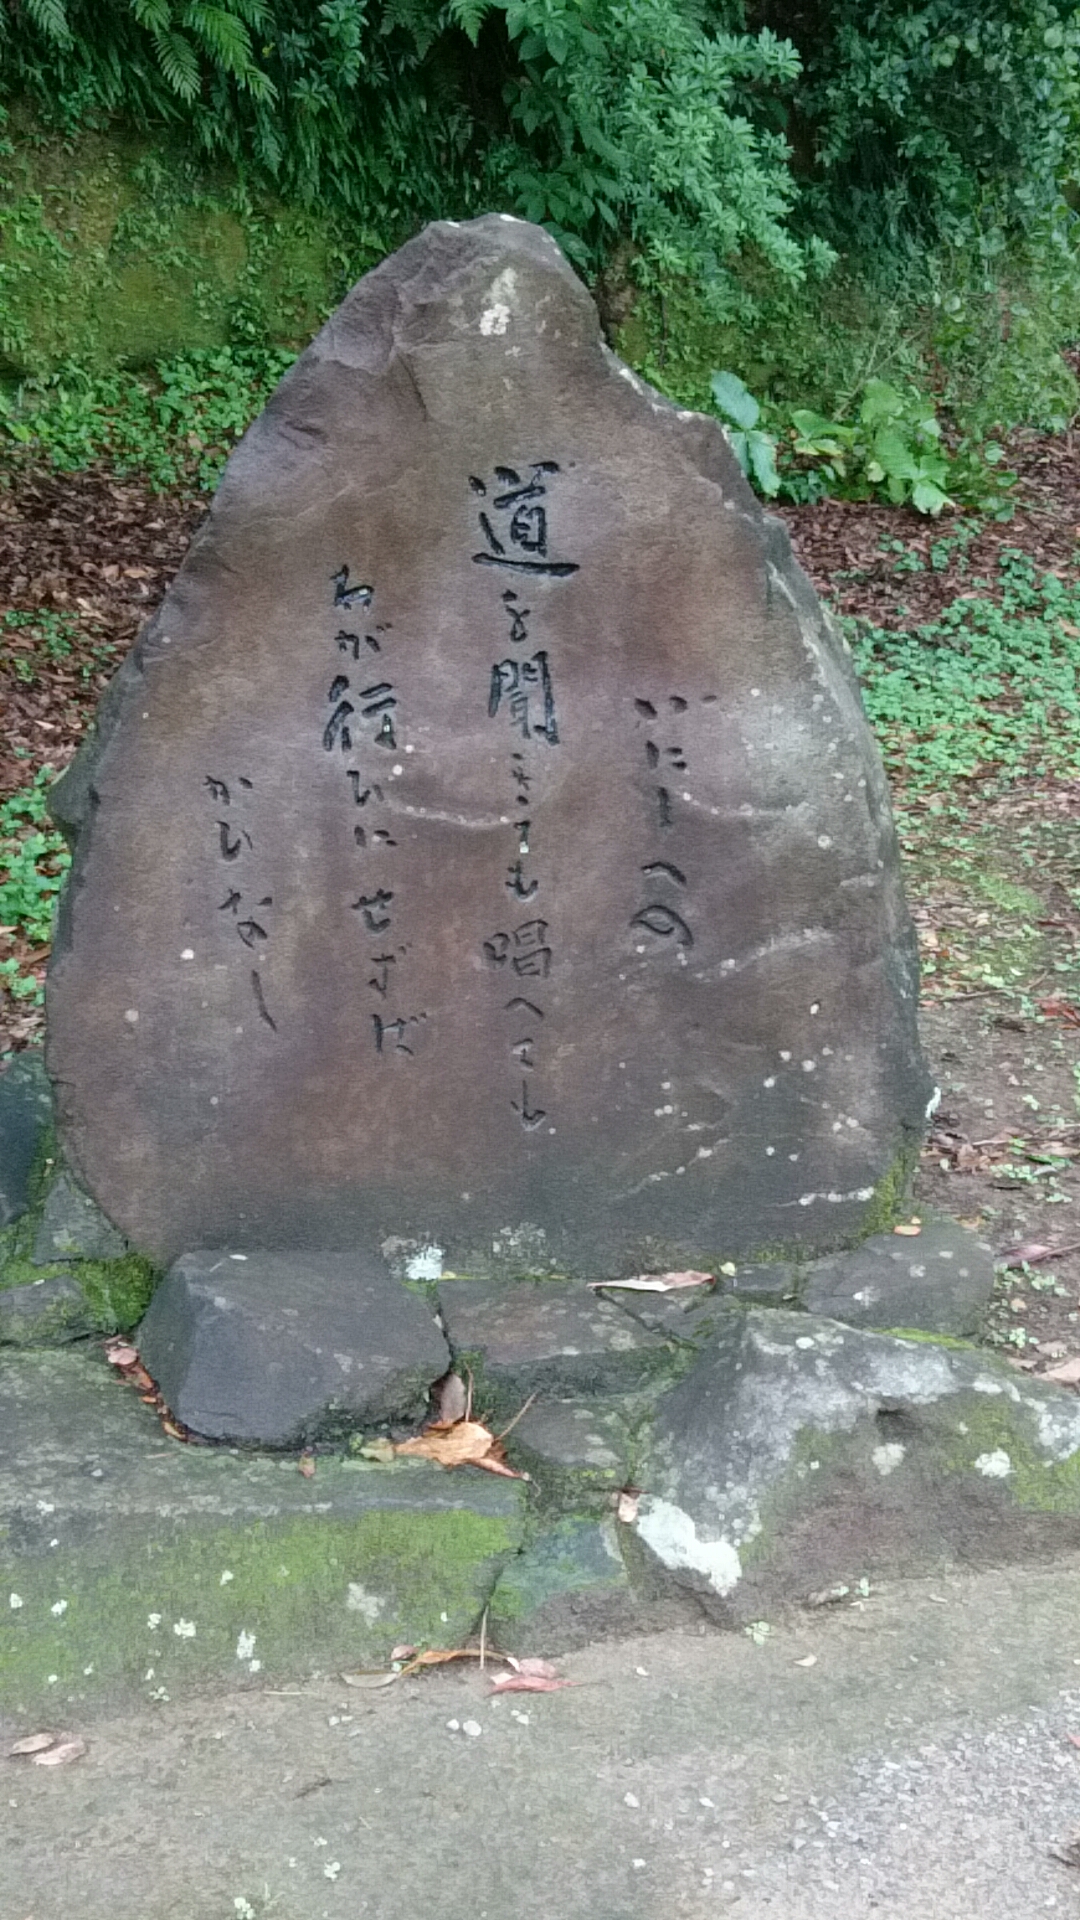 いにしへの
道を聞きても唱へても
わが行ひにせずば
かひなし